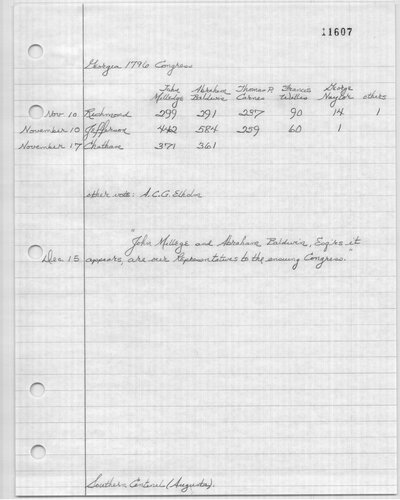 11607
Georgia 1796 Congress
John Milledge Abraham Baldwin Thomas P. Carnes Francis Willis George Naylor others
Nov 10 Richmond 299 291 237 90 14 1
November 10 Jefferson 442 584 259 60 1
November 17 Chatham 371 361
other vote: A.C.G.
"John Millege and Abraham Baldwin, Esqrs it
Dec 15 appears, are our Representatives to the ensuing Congress."
Southern Centinel (Augusta).